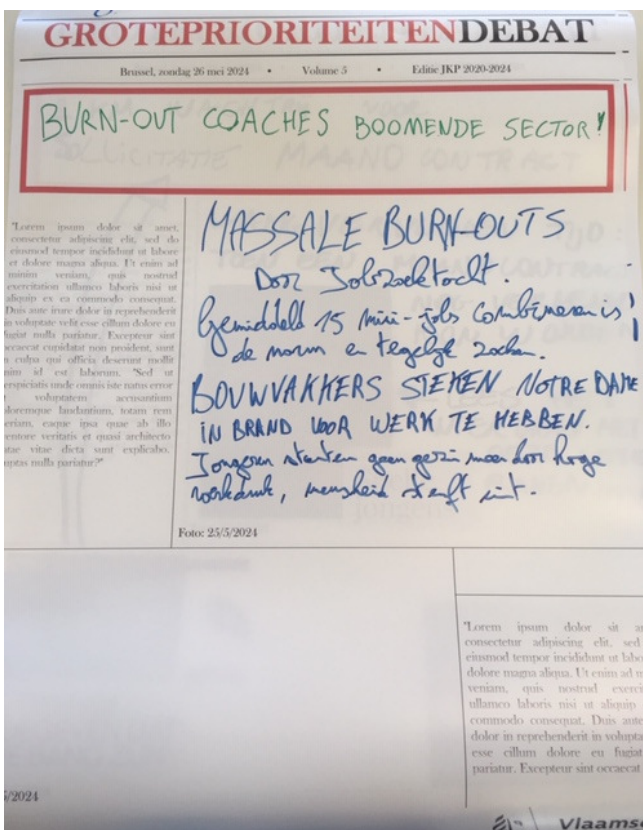 GROTEPRIORITEITENDEBAT
Brussel, zondag 26 mei 2024 • Volume 5 • Editie JKP 2020-2024
BURN-OUT COACHES BOOMENDE SECTOR!
SOLLICITATIE MAAND CONTRACT
"Lorem ipsum dolor sit amet,
consectetur adipiscing elit, sed do
eiusmod tempor incididunt ut labore
et dolore magna aliqua. Ut enim ad
minim veniam, quis nostrud
exercitation ullamco laboris nisi ut
aliquip ex ea commodo consequat.
Duis aute irure dolor in reprehenderit
in voluptate velit esse cillum dolore eu
fugiat nulla pariatur. Excepteur sint
occaecat cupidatat non proident, sunt
culpa qui officia deserunt mollit
nim id est laborum. "Sed ut
erspiciatis unde omnis iste natus error
voluptatem accusantium
loremque laudantium, totam rem
eriam, eaque ipsa quae ab illo
ventore veritatis et quasi architecto
atae vitae dicta sunt explicabo.
uptas nulla pariatur?"
MASSALE BURN-OUTS
Door Jobzoektocht.
Gemiddeld 15 mini-jobs combineren is
de norm en tegelijk zoeken.
BOUWVAKKERS STEKEN NOTRE DAME
IN BRAND VOOR WERK TE HEBBEN.
Jongeren starten geen gezin meer door hoge
werkdruk, mensheid sterft uit.
Foto: 25/5/2024
"Lorem ipsum dolor sit a
consectetur adipiscing elit, sed
eiusmod tempor incididunt ut labo
dolore magna aliqua. Ut enim ad m
veniam, quis nostrud exerci
ullamco laboris nisi ut aliquip
commodo consequat. Duis aute
dolor in reprehenderit in volupta
esse cillum dolore eu fugiat
pariatur. Excepteur sint occaecat
5/2024
Vlaamse